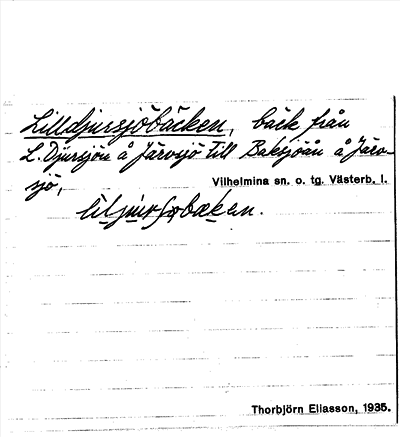 Lilldjursjöbäcken, bäck från
L. Djursjön å Järvsjö till Baksjöån å Järv-
sjö,
Vilhelmina sn. o. tg. Västerb. l.
Thorbjörn Eliasson, 1935.